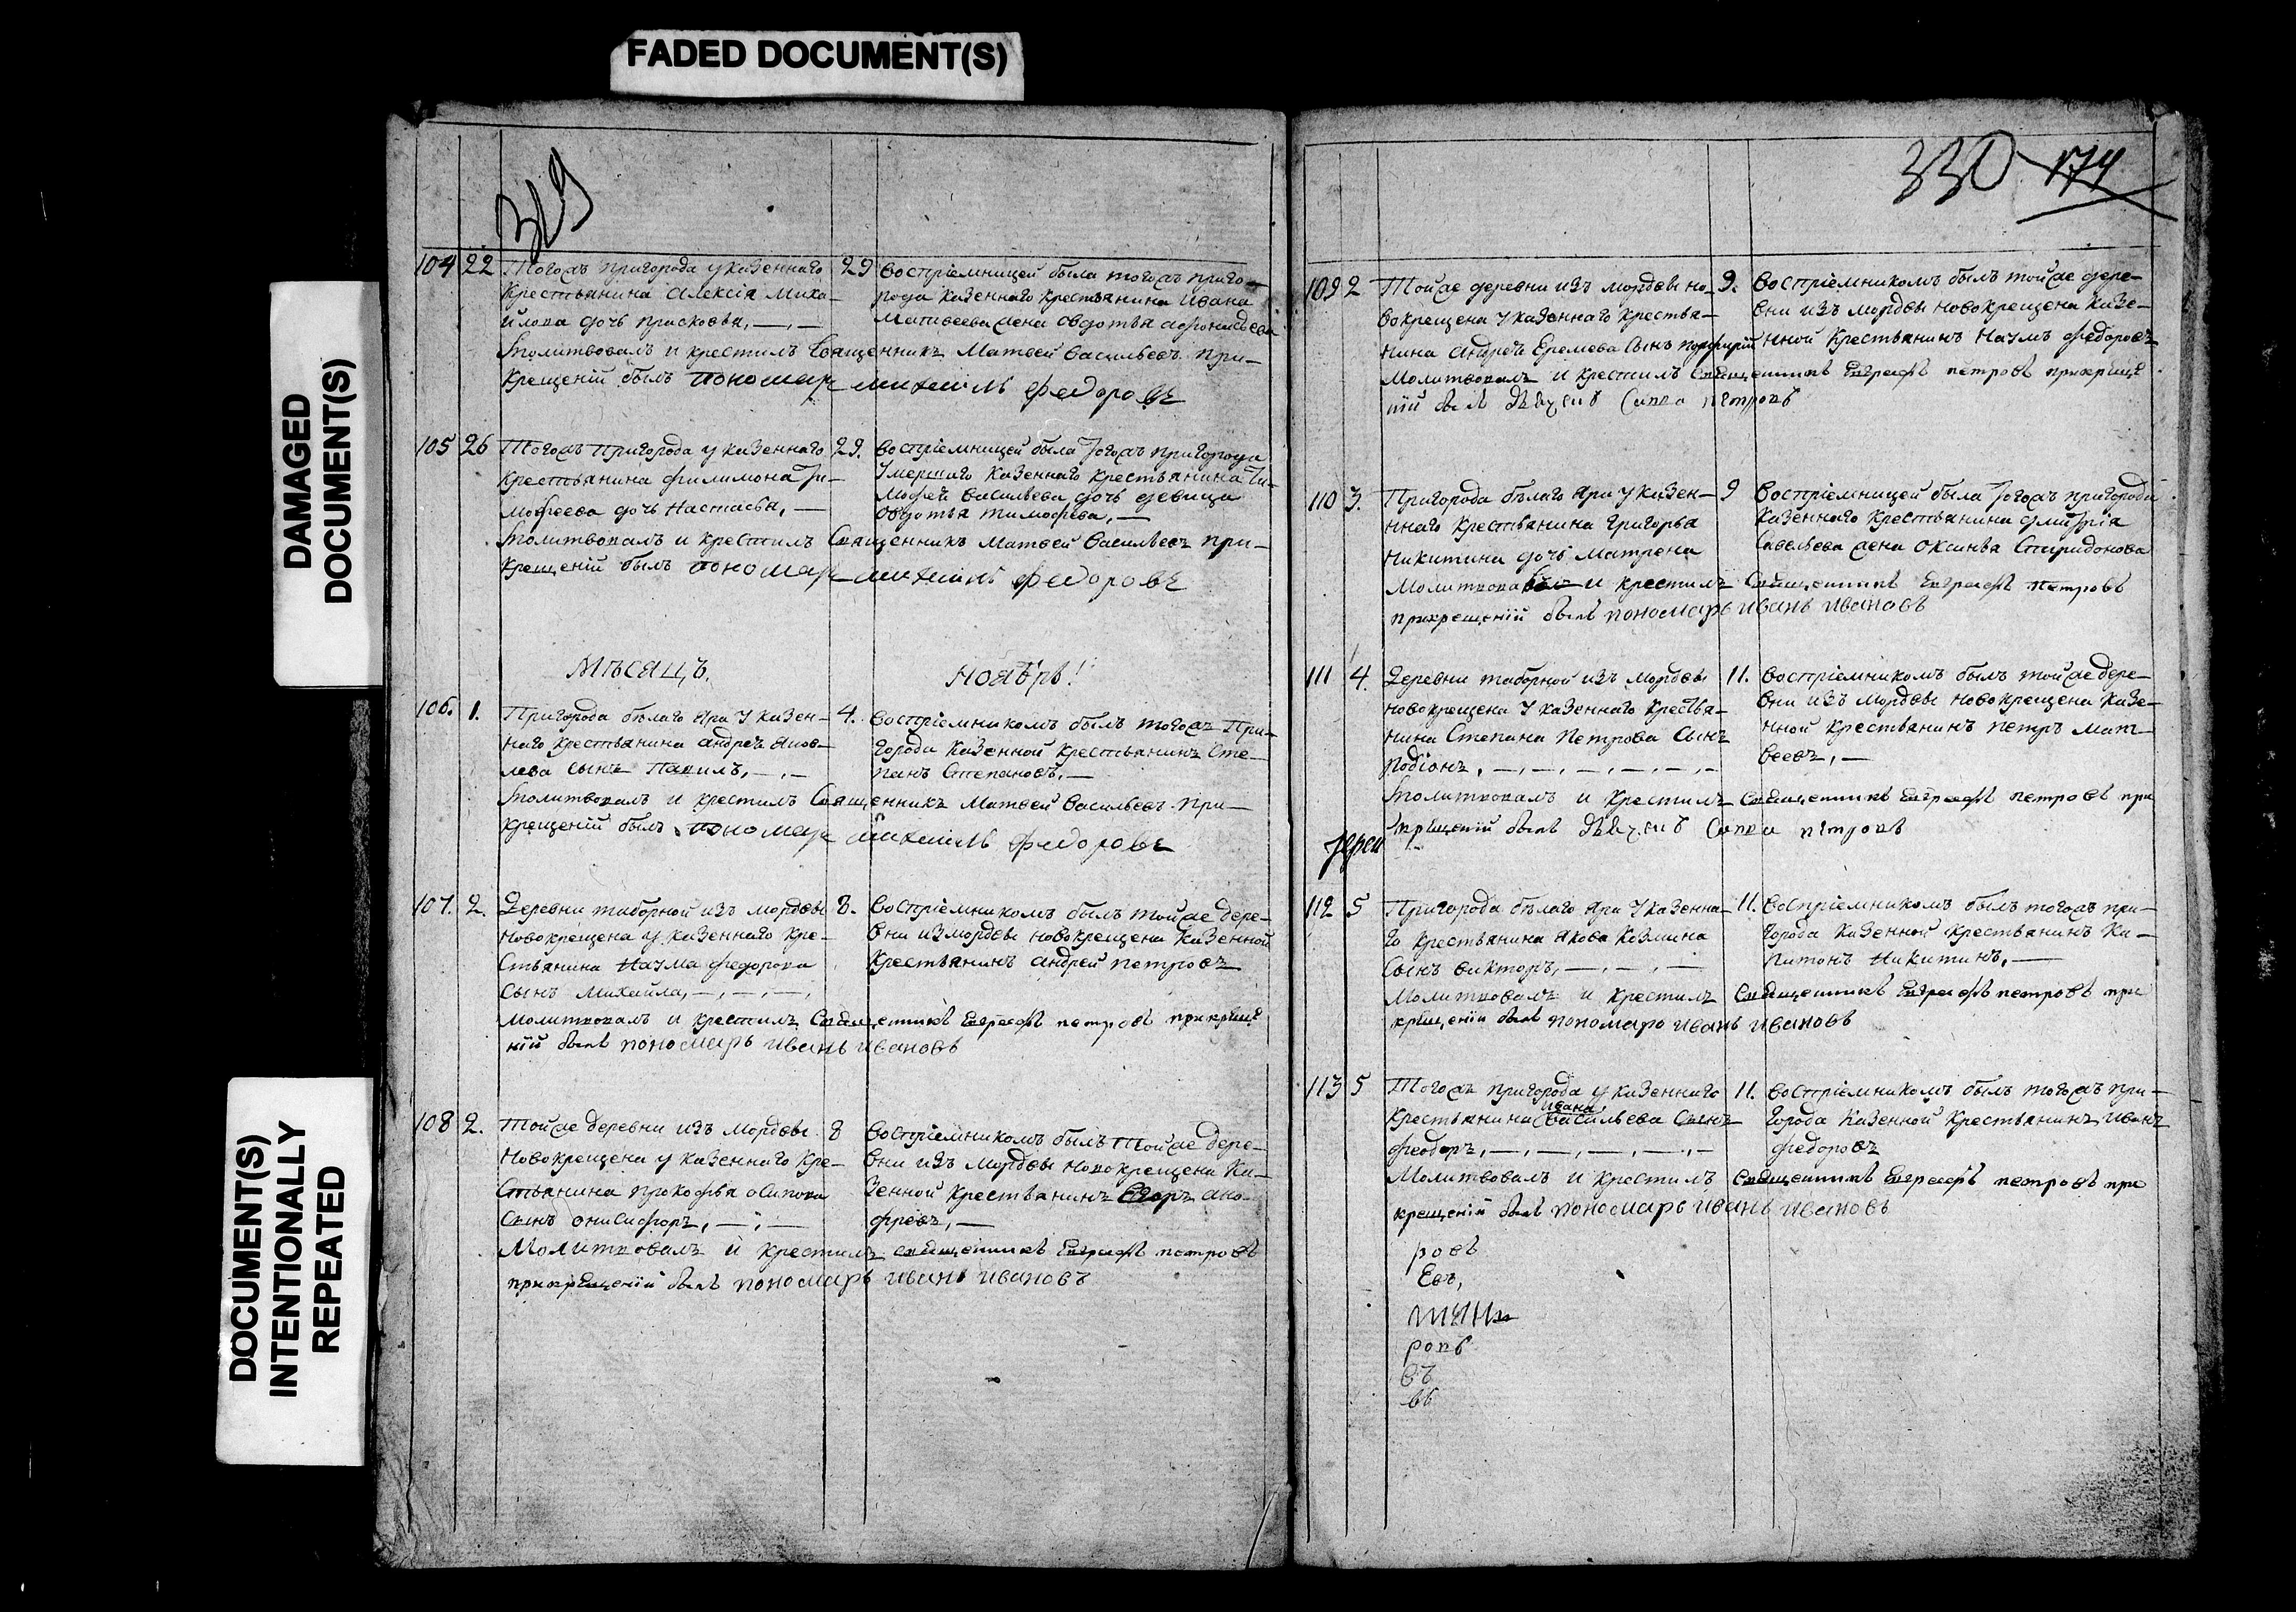 FADED DOCUMENT(S)
DAMAGED
DOCUMENT(S)
DOCUMENT(S)
INTENTIONALLY
REPEATED
329
104 22 Тогожъ пригорода у казеннаго
Крестьянина Алексія Миха–
йлова дочь Прасковья,
29 Воспріемницей была тогожъ приго–
рода казеннаго крестьянина Ивана
Матвеева жена Овдотья
Молитвовалъ и крестилъ Священникъ Матвей Васильевъ при–
крещеніи былъ пономарь Михаилъ Федоровъ
105 26 Тогожъ Пригорода у казеннаго
крестьянина Филимона Ти–
мофеева дочь Настасья,
29. Воспріемницей была Тогожъ пригорода
Умершаго казеннаго крестьянина Ти–
мофея Васильева дочь девица
Овдотья Тимофева,
Молитвовалъ и крестилъ Священникъ Матвей Васильевъ при–
крещеніи былъ пономарь Михаилъ Федоровъ
Мѣсяцъ. Ноябрь!
106. 1. Пригорода белаго Яра у казен–
наго крестьянина Андрея Яков–
лева сынъ Павилъ,
4. Воспріемникомъ былъ тогожъ При–
города казенной крестьянинъ Сте–
панъ Степановъ,
Молитвовалъ и крестилъ Священникъ Матвей Васильевъ при–
крещеніи былъ пономарь Михаилъ Федоровъ
107. 2. Деревни таборной изъ мордвы
новокрещена у казеннаго кре–
стьянина Наума Федорова
сынъ Михайла,
8. Воспріемникомъ былъ тойже дере–
вни изъ мордвы новокрещена казенной
крестьянинъ Андрей Петровъ
молитвовалъ и крестилъ Священникъ Евграфъ Петровъ прикрѣще
ніи былъ пономарь Иванъ Ивановъ
108 2. Тойже деревни изъ мордвы
Новокрещена у казеннаго кре–
стьянина Прокофья Осипова
сынъ Онисифоръ,
8 Воспріемникомъ былъ Тойже дере–
вни изъ мордвы новокрещена ка–
зенной крестьянинъ Егоръ Ано–
фревъ,
Молитвовалъ и крестилъ священникъ Евграфъ Петровъ
прикрещеніи былъ пономарь Иванъ Ивановъ
330 174
109 2 Тойже деревни изъ мордвы но–
вокрещена у казеннаго крестья–
нина Андрея Еремева Сынъ Порфирій
9. Воспріемникомъ былъ тойже дере–
вни изъ мордвы новокрещена казе–
нной крестьянинъ Наумъ Федоровъ
Молитвовалъ и крестилъ Священникъ Евграфъ Петровъ прикрище
ніи былъ Дьячекъ Савва Петровъ
110 3. Пригорода белаго Яра у казен–
ннаго крестьянина Григорья
Никитина дочь Матрена
9 Воспріемницей была Тогожъ пригорода
казеннаго крестьянина Дмитрія
Савельева жена Оксинья Спиридонова
Молитвовалъ и крестилъ Священникъ Евграфъ Петровъ
прикрещеніи былъ пономарь Иванъ Ивановъ
111 4. Деревни таборной изъ мордвы
новокрещена у казеннаго крестья–
нина Степана Петрова Сынъ
Родіонъ,
11. Воспріемникомъ былъ тойже дере–
вни изъ мордвы новокрещена казе–
нной крестьянинъ Петръ Мат–
веевъ,
Молитвовалъ и крестилъ Священникъ Евграфъ Петровъ при
крещеніи былъ Дьячекъ Савва Петровъ
Іереи
112 5 Пригорода белаго Яра у казенна–
го крестьянина Якова Козмина
Сынъ Викторъ,
11. Воспріемникомъ былъ тогожъ при–
города казенной крестьянинъ Ка–
питонъ Никитинъ,
Молитвовалъ и крестилъ Священникъ Евграфъ Петровъ при
крещеніи былъ пономарь Иванъ Ивановъ
113 5 Тогожъ пригорода у казеннаго
крестьянина Ивана Васильева Сынъ
Феодоръ,
11. Воспріемникомъ былъ тогожъ при–
города казенной крестьянинъ Иванъ
Федоровъ
Молитвовалъ и крестилъ Священникъ Евграфъ Петровъ при
крещеніи былъ пономарь Иванъ Ивановъ
ровъ
Евъ,
ровъ
въ
въ